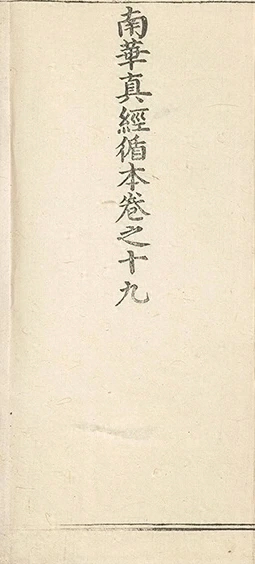 南華真經循本卷之十九